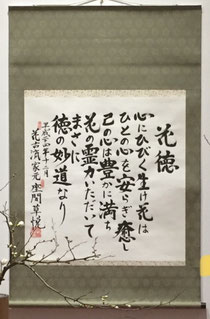 花徳
心にひびく生け花は
ひとの心を安らぎ癒し
己の心は豊かに満ち
花の霊力いただいて
まさに
徳の妙道なり
平成二十四年十二月
花古流家元 座間草悦